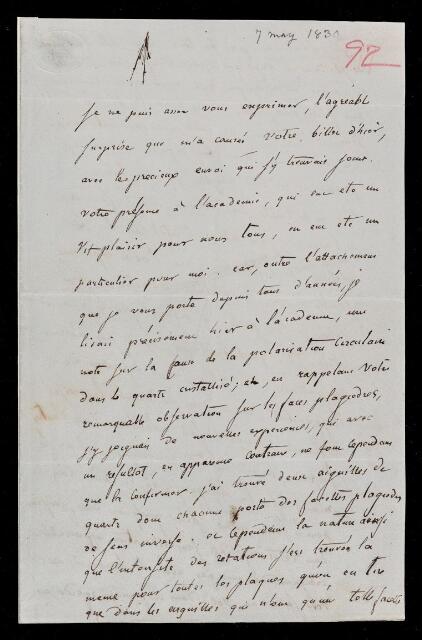 7 may 183
92
Je ne puis assez vous exprimer, l'agréable
surprise que m'a causée votre billet d'hier,
avec les precieux envoi que j'y trouvais joint.
votre présence à l'academie, qui eut eté un
vif plaisir pour nous tous, en eut eté un
particulier pour moi. car, outre l'attachement
que je vous porte depuis tant d'années, je
lisais précisement hier à l'académie, une
note sur la cause de la polarisation circulaire
dans le quartz cristallisé; et, en rappelant votre
remarquable observation sur les faces plagiedres,
j'y joignais de nouvelles experiences, qui avec
un résultat, en apparence contraire, ne font cependant
que le confirmer. j'ai trouvé deux aiguilles de
quartz dont chacune porte des facettes plagiedres
de sens inverse. et cependant la nature ainsi
que l'intensité des rotations s'est trouvée la
meme pour toutes les plaques qu'on en tire
que dans les aiguilles qui n'ont qu'une telle facette